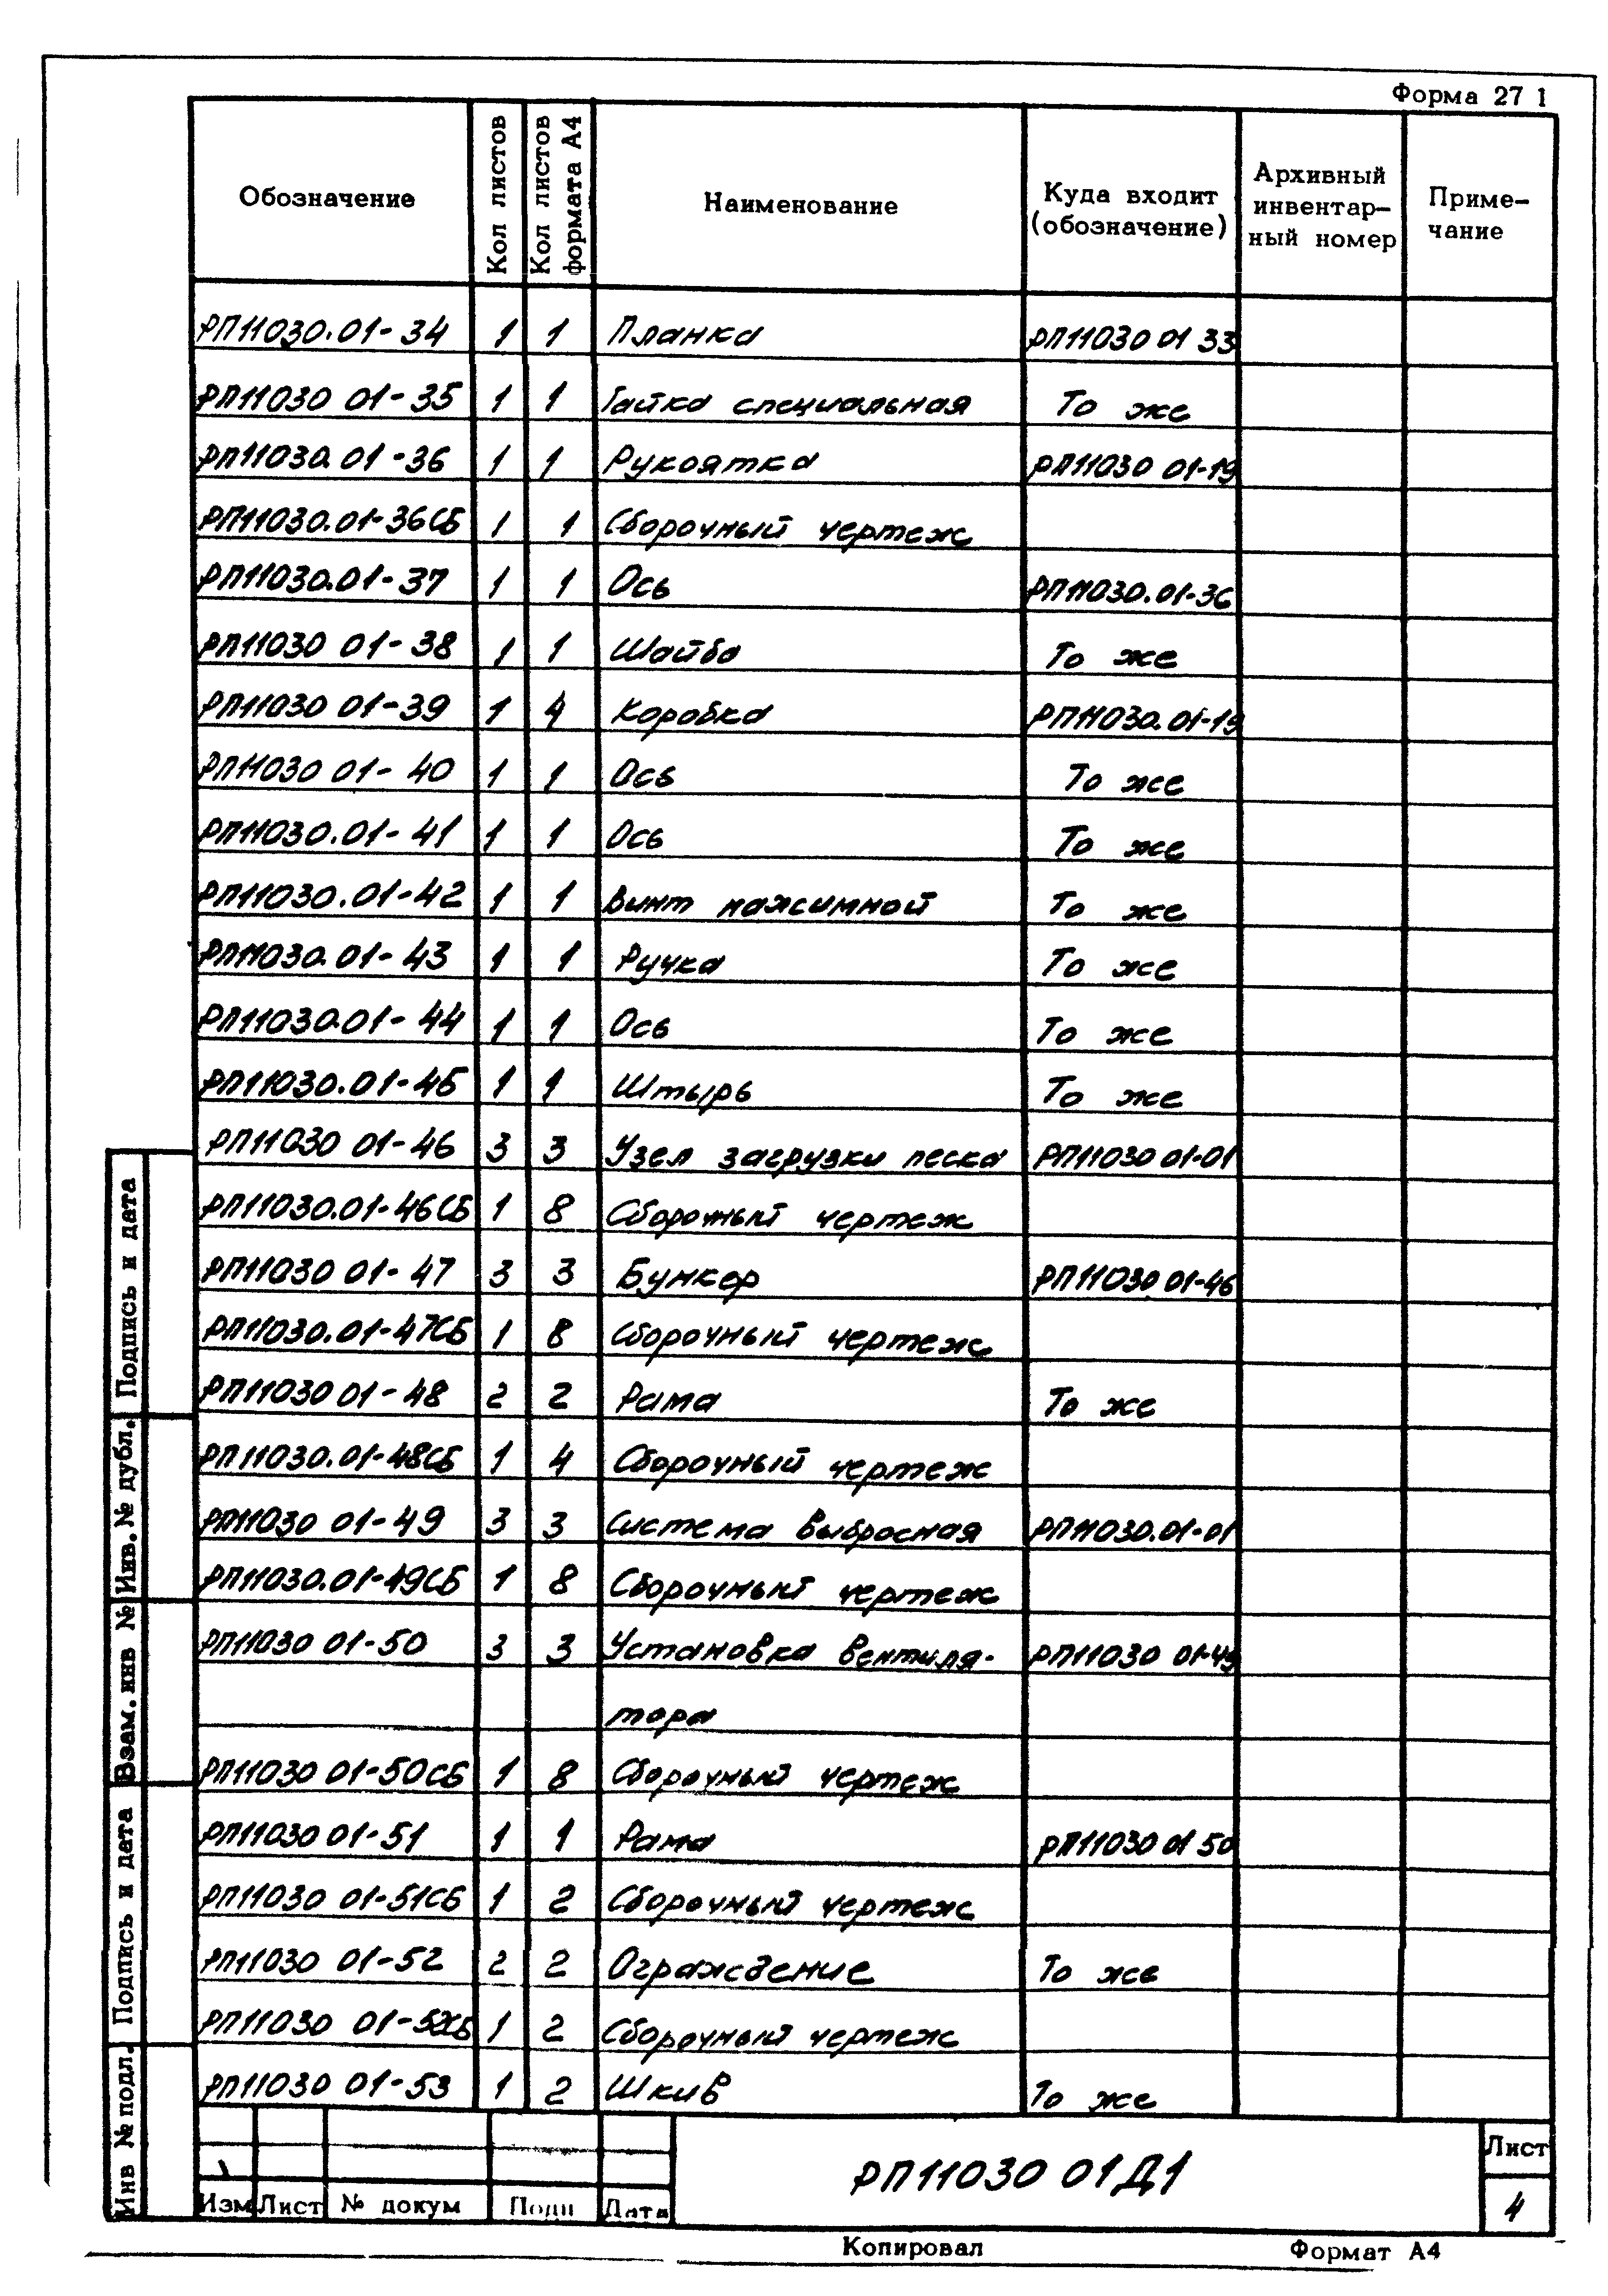 Форма 27 1
Обозначение Кол листов Кол листов формата А4 Наименование Куда входит (обозначение) Архивный инвентарный номер Примечание
РП11030.01-34 1 1 Планка РП11030 01 33
РП11030 01-35 1 1 Гайка специальная То же
РП11030.01-36 1 1 Рукоятка РП11030 01-19
РП11030.01-36СБ 1 1 Сборочный чертеж
РП11030.01-37 1 1 Ось РП11030.01-36
РП11030 01-38 1 1 Шайба То же
РП11030 01-39 1 4 Коробка РП11030.01-19
РП11030 01-40 1 1 Ось То же
РП11030.01-41 1 1 Ось То же
РП11030.01-42 1 1 Винт нажимной То же
РП11030.01-43 1 1 Ручка То же
РП11030.01-44 1 1 Ось То же
РП11030.01-45 1 1 Штырь То же
РП11030 01-46 3 3 Узел загрузки песка РП11030 01-01
РП11030.01-46СБ 1 8 Сборочный чертеж
РП11030 01-47 3 3 Бункер РП11030 01-46
РП11030.01-47СБ 1 8 Сборочный чертеж
РП11030 01-48 2 2 Рама То же
РП11030.01-48СБ 1 4 Сборочный чертеж
РП11030 01-49 3 3 Система выбросная РП11030.01-01
РП11030.01-49СБ 1 8 Сборочный чертеж
РП11030 01-50 3 3 Установка вентиля- РП11030 01-49
тора
РП11030 01-50СБ 1 8 Сборочный чертеж
РП11030 01-51 1 1 Рама РП11030 01 50
РП11030 01-51СБ 1 2 Сборочный чертеж
РП11030 01-52 2 2 Ограждение То же
РП11030 01-52СБ 1 2 Сборочный чертеж
РП11030 01-53 1 2 Шкив То же
Подпись и дата
Инв. № дубл.
Взам. инв №
Подпись и дата
Инв № подл.
Изм Лист № докум Подп Дата
РП11030 01Д1
Лист
4
Копировал Формат А4